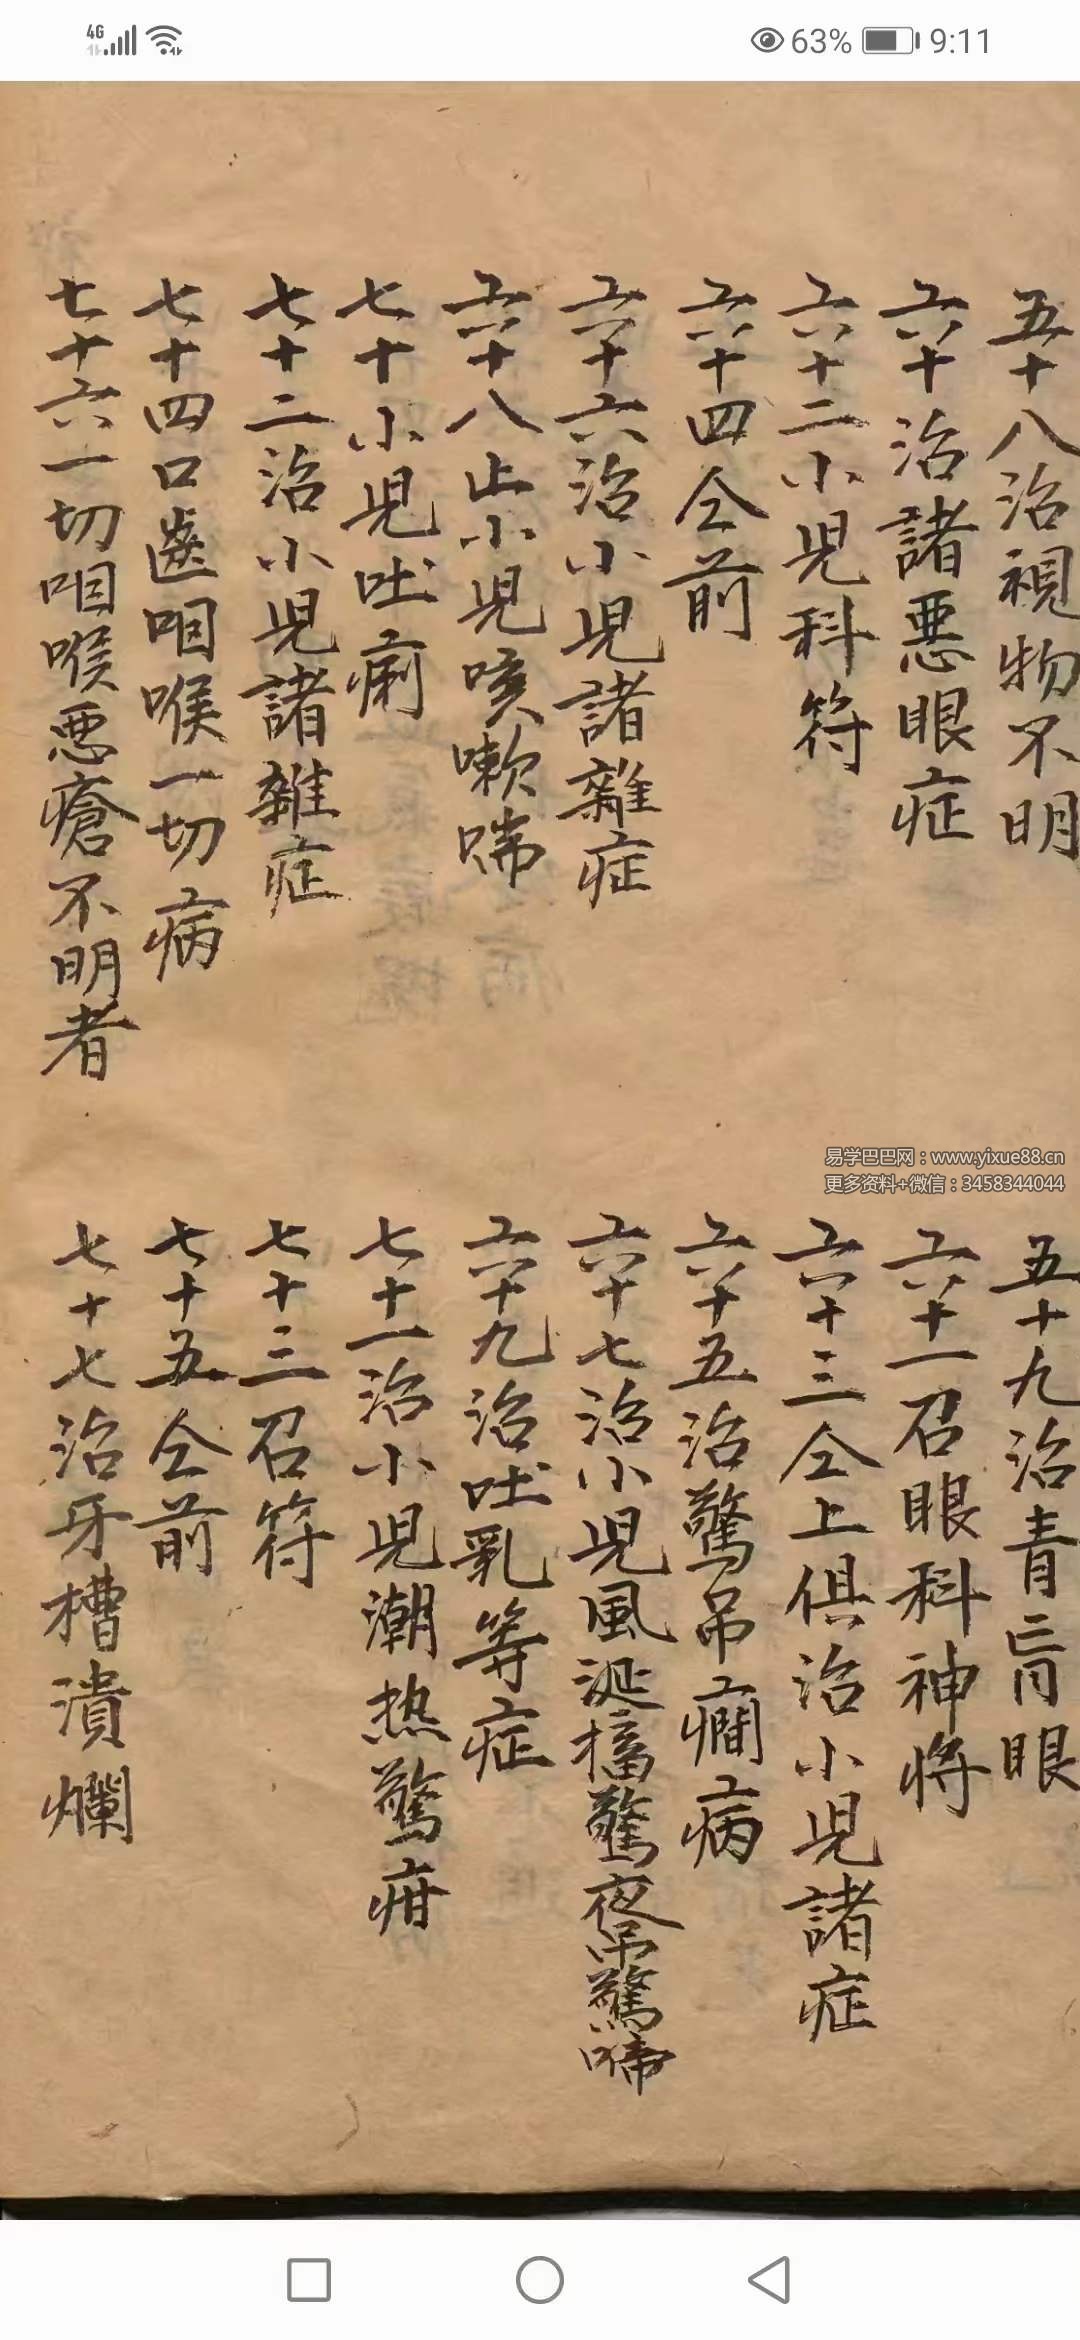 4G 63% 9:11
五十八治視物不明
五十九治青盲眼
六十治諸惡眼症
六十一召眼科神將
六十二小児科符
六十三仝上俱治小児諸症
六十四仝前
六十五治驚吊癇病
六十六治小児諸雜症
六十七治小児風涎搐驚夜吊驚啼
六十八止小児咳嗽喘
六十九治吐乳等症
七十小児吐痢
七十一治小児潮热驚疳
七十二治小児諸雜症
七十三召符
七十四口齒咽喉一切病
七十五仝前
七十六一切咽喉惡瘡不明者
七十七治牙槽潰爛
易学巴巴网：www.yixue88.cn
更多资料+微信：3458344044